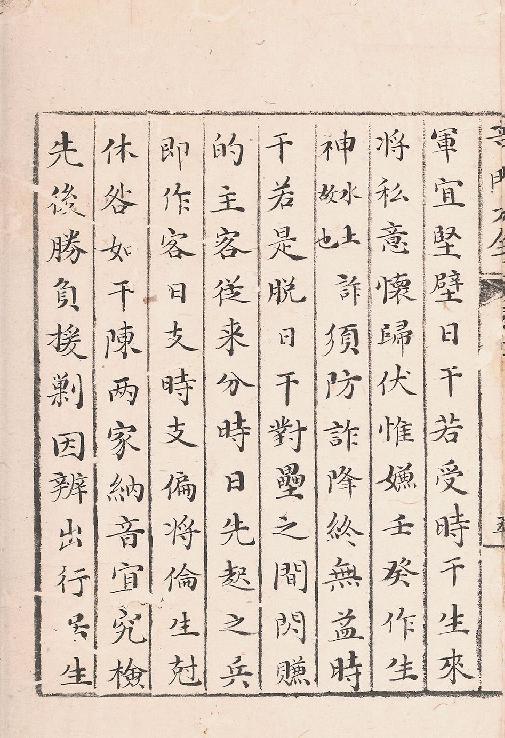 軍宜堅壁日干若受時干生來
將私意懷歸伏惟嫌壬癸作生
神水上故也詐須防詐降終無益時
干若是脱日干對壘之間閃賺
的主客從来分時日先起之兵
即作客日支時支偏將倫生尅
休咎如干陳两家納音宜究檢
先後勝負援剿因辨出行另生